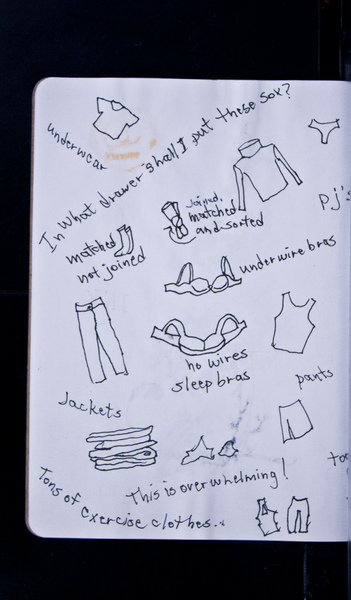 In what drawer shall I put these sox?
underwear
joined,
matched
and-sorted
pj's
matched
not joined
underwire bras
no wires
sleep bras
pants
Jackets
This is overwhelming!
Tons of
exercise clothes..